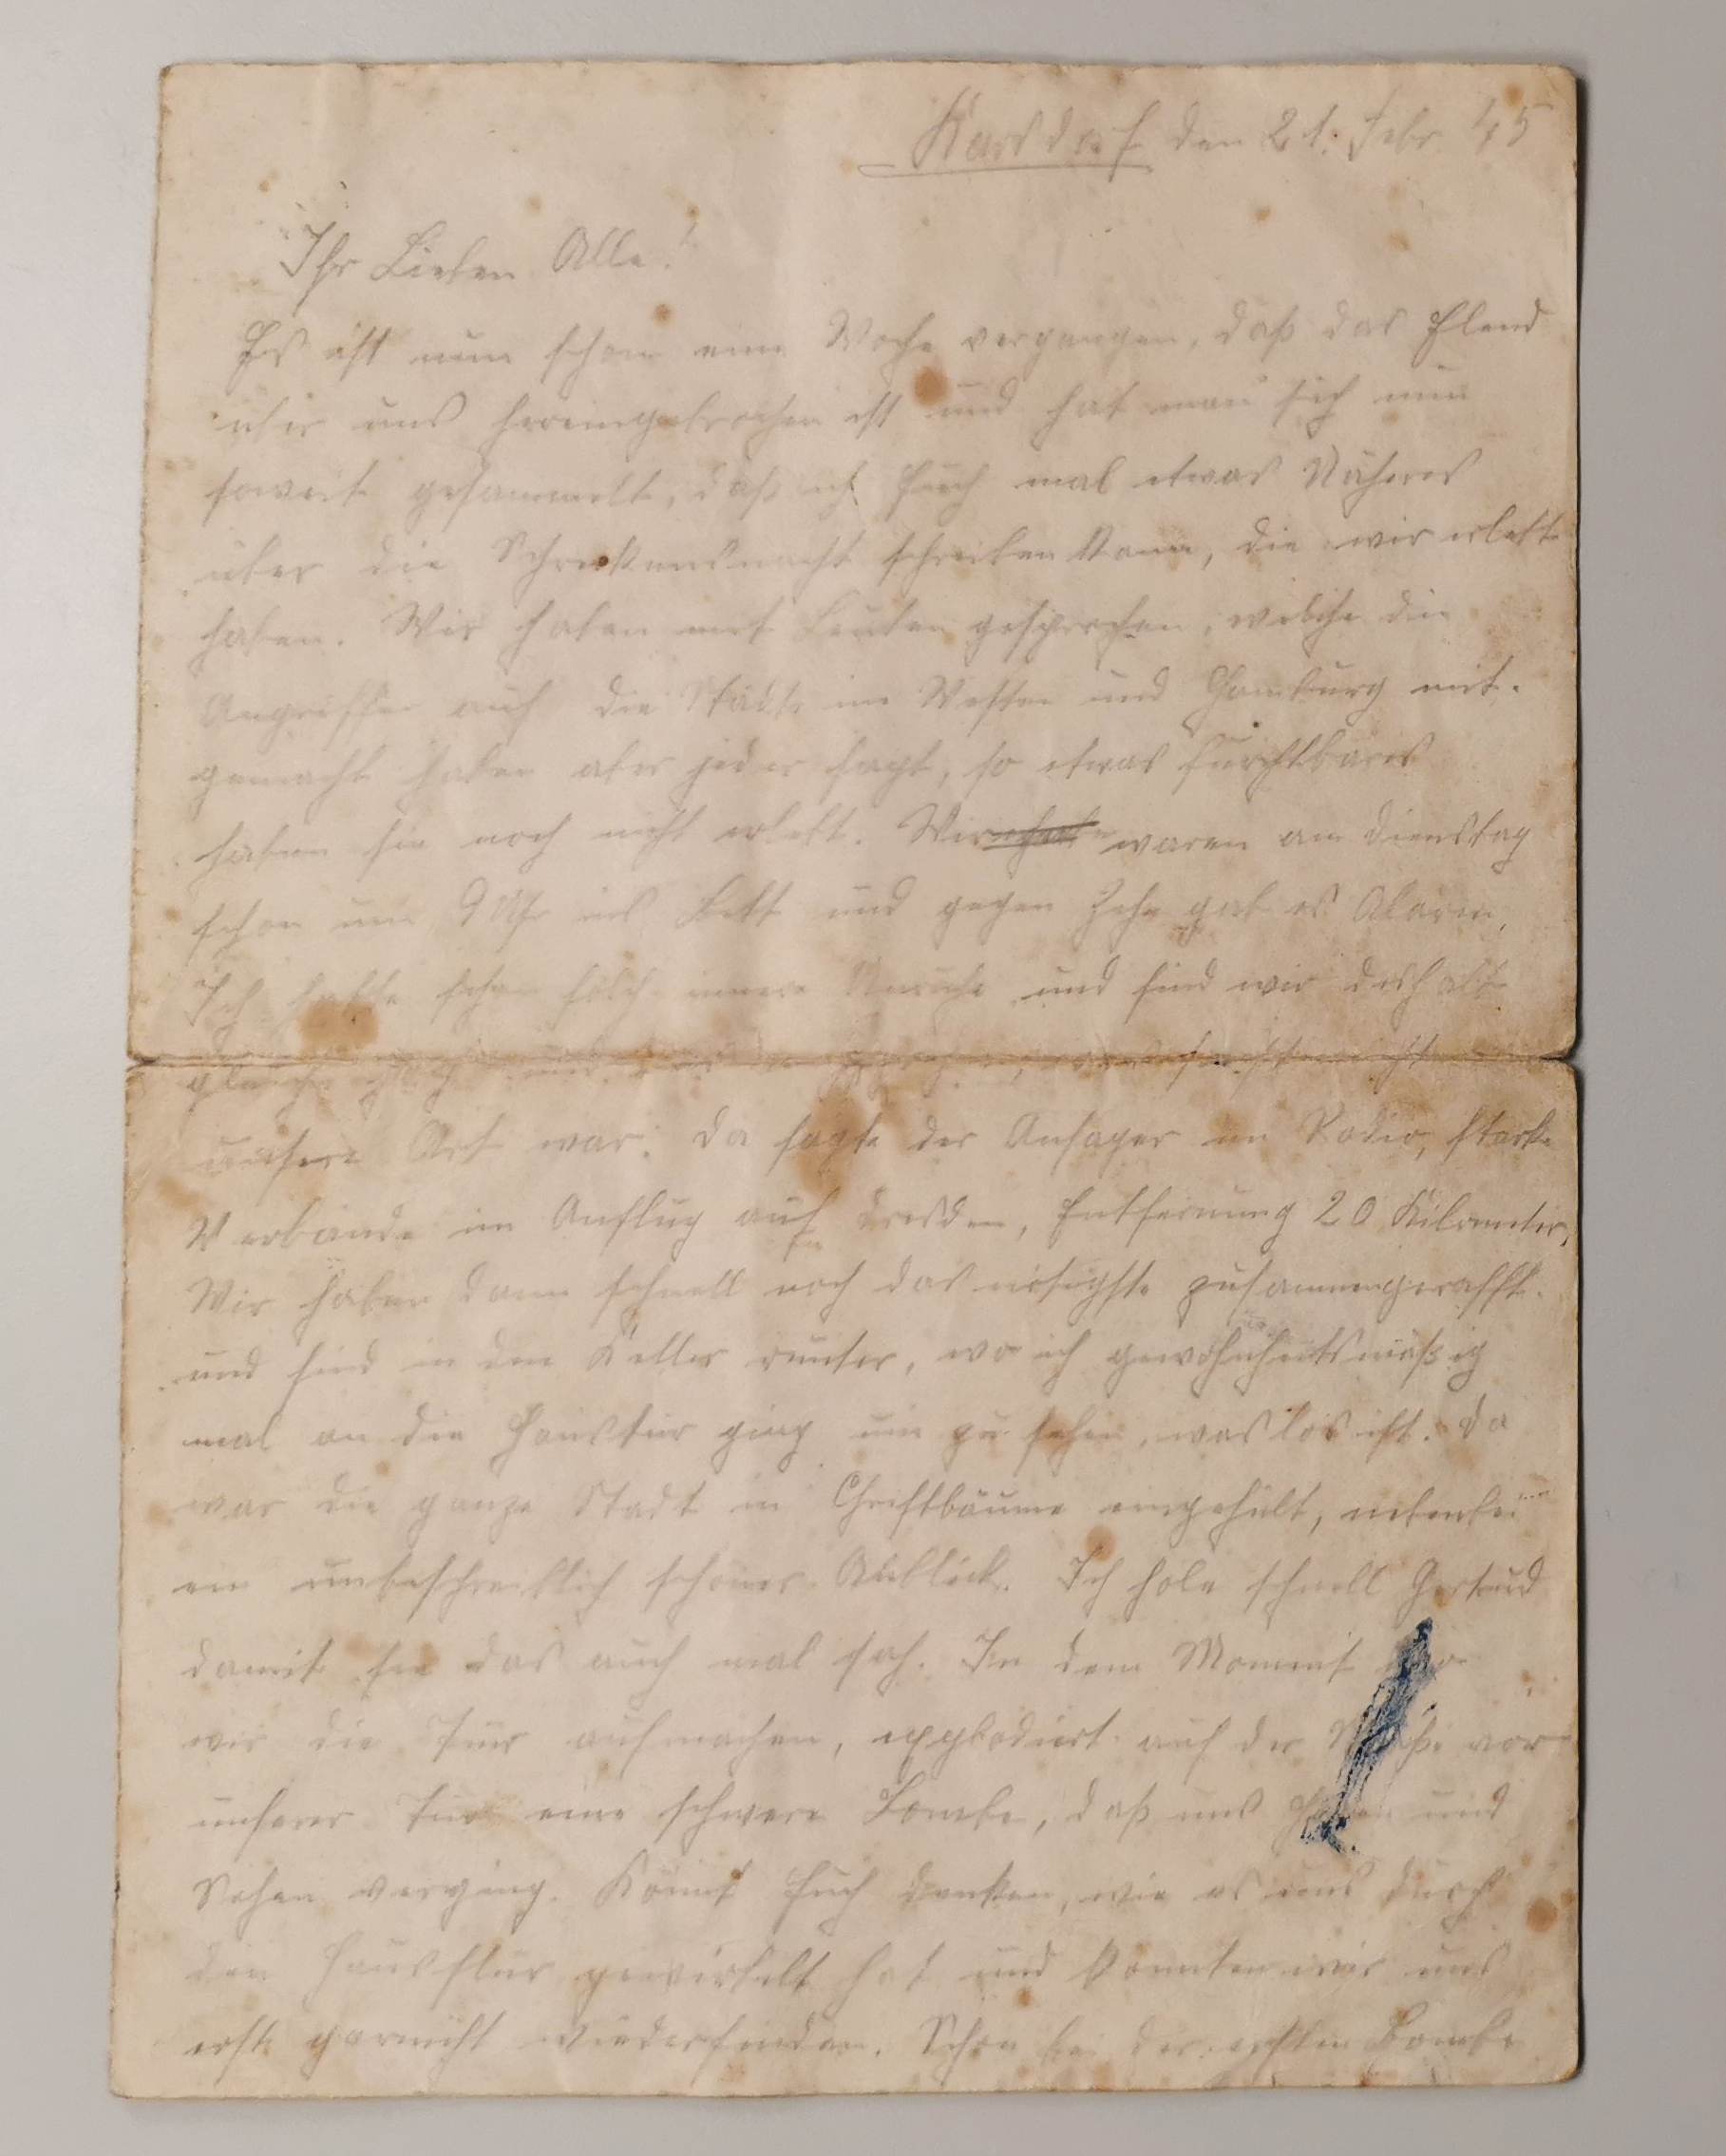 Karsdorf den 21. Febr. 45
Ihr Lieben Alle!
Es ist nun schon eine Woche vergangen, daß das Elend
über uns hereingebrochen ist und hat man sich nun
soweit gesammelt, daß ich Euch mal etwas Näheres
über die Schreckensnacht schreiben kann, die wir erlebt
haben. Wir haben mit Leuten gesprochen, welche die
Angriffe auf die Städte im Westen und Hamburg mit-
gemacht haben aber jeder sagt, so etwas furchtbares
haben sie noch nicht erlebt. Wir waren am Dienstag
schon um 9 Uhr ins Bett und gegen Zehn gab es Alarm,
Ich hatte schon solch innere Unruhe und sind wir deshalb
gleich und was sonst nicht
unsere Art war. Da sagte der Ansager im Radio, starke
Verbände im Anflug auf Dresden, Entfernung 20 Kilometer,
Wir haben dann schnell noch das nötigste zusammengerafft
und sind in den Keller runter, wo ich gewohnheitsmäßig
mal an die Haustür ging um zu sehen, was los ist. Da
war die ganze Stadt in Christbäume eingehült, nebenbei
ein unbeschreiblich schöner Anblick. Ich hole schnell Gertrud
damit sie das auch mal sah. In dem Moment wo
wir die Tür aufmachen, explodiert auf der Straße vor
unserer Tür eine schwere Bombe, daß uns Hören und
Sehen verging. Könnt Euch denken, wie es uns durch
den Hausflur gewirbelt hat und konnten wir uns
erst garnicht wiederfinden. Schon bei der ersten Bombe